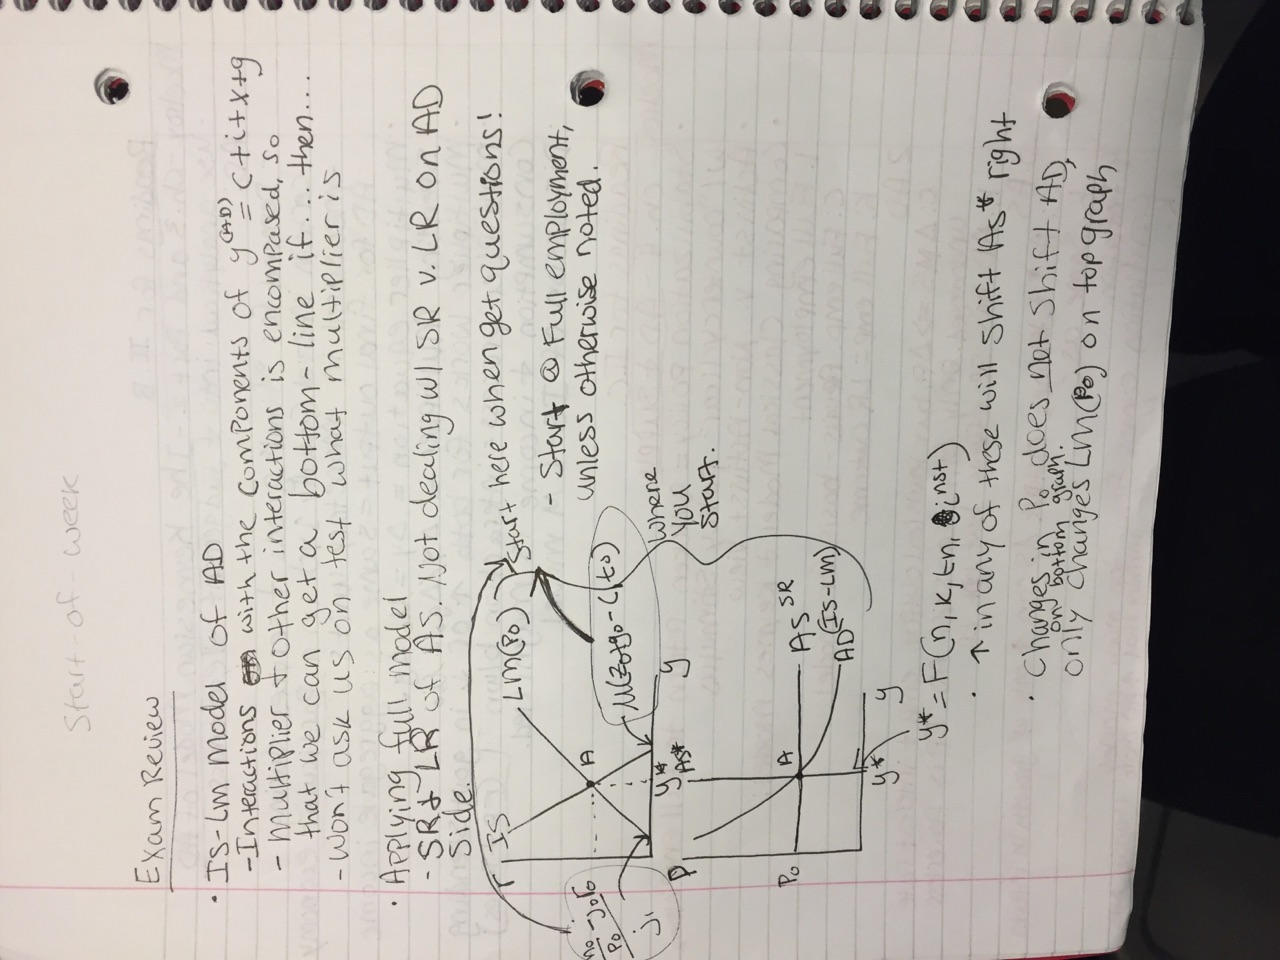 Start-of-week
Exam Review
· IS-LM Model of AD
- Interactions with the components of y(AD) = c+i+x+g
- Multiplier + other interactions is encompased, so
that we can get a bottom-line if.... then....
- Won't ask us on test what multiplier is
· Applying full model
- SR + LR of AS. Not dealing w/ SR v. LR on AD
side.
Start here when get questions!
- Start @ Full employment,
unless otherwise noted.
r
IS
LM(P₀)
A
m₀/P₀ - j₀r₀
j₁
y* AS*
y
Where
you
start.
P
P₀
A
AS SR
AD(IS-LM)
y*
y
y* = F(n, k, tn, inst)
· ↑ in any of these will shift AS* right
· Changes in P₀ does not shift AD,
on bottom graph.
only changes LM(P₀) on top graph